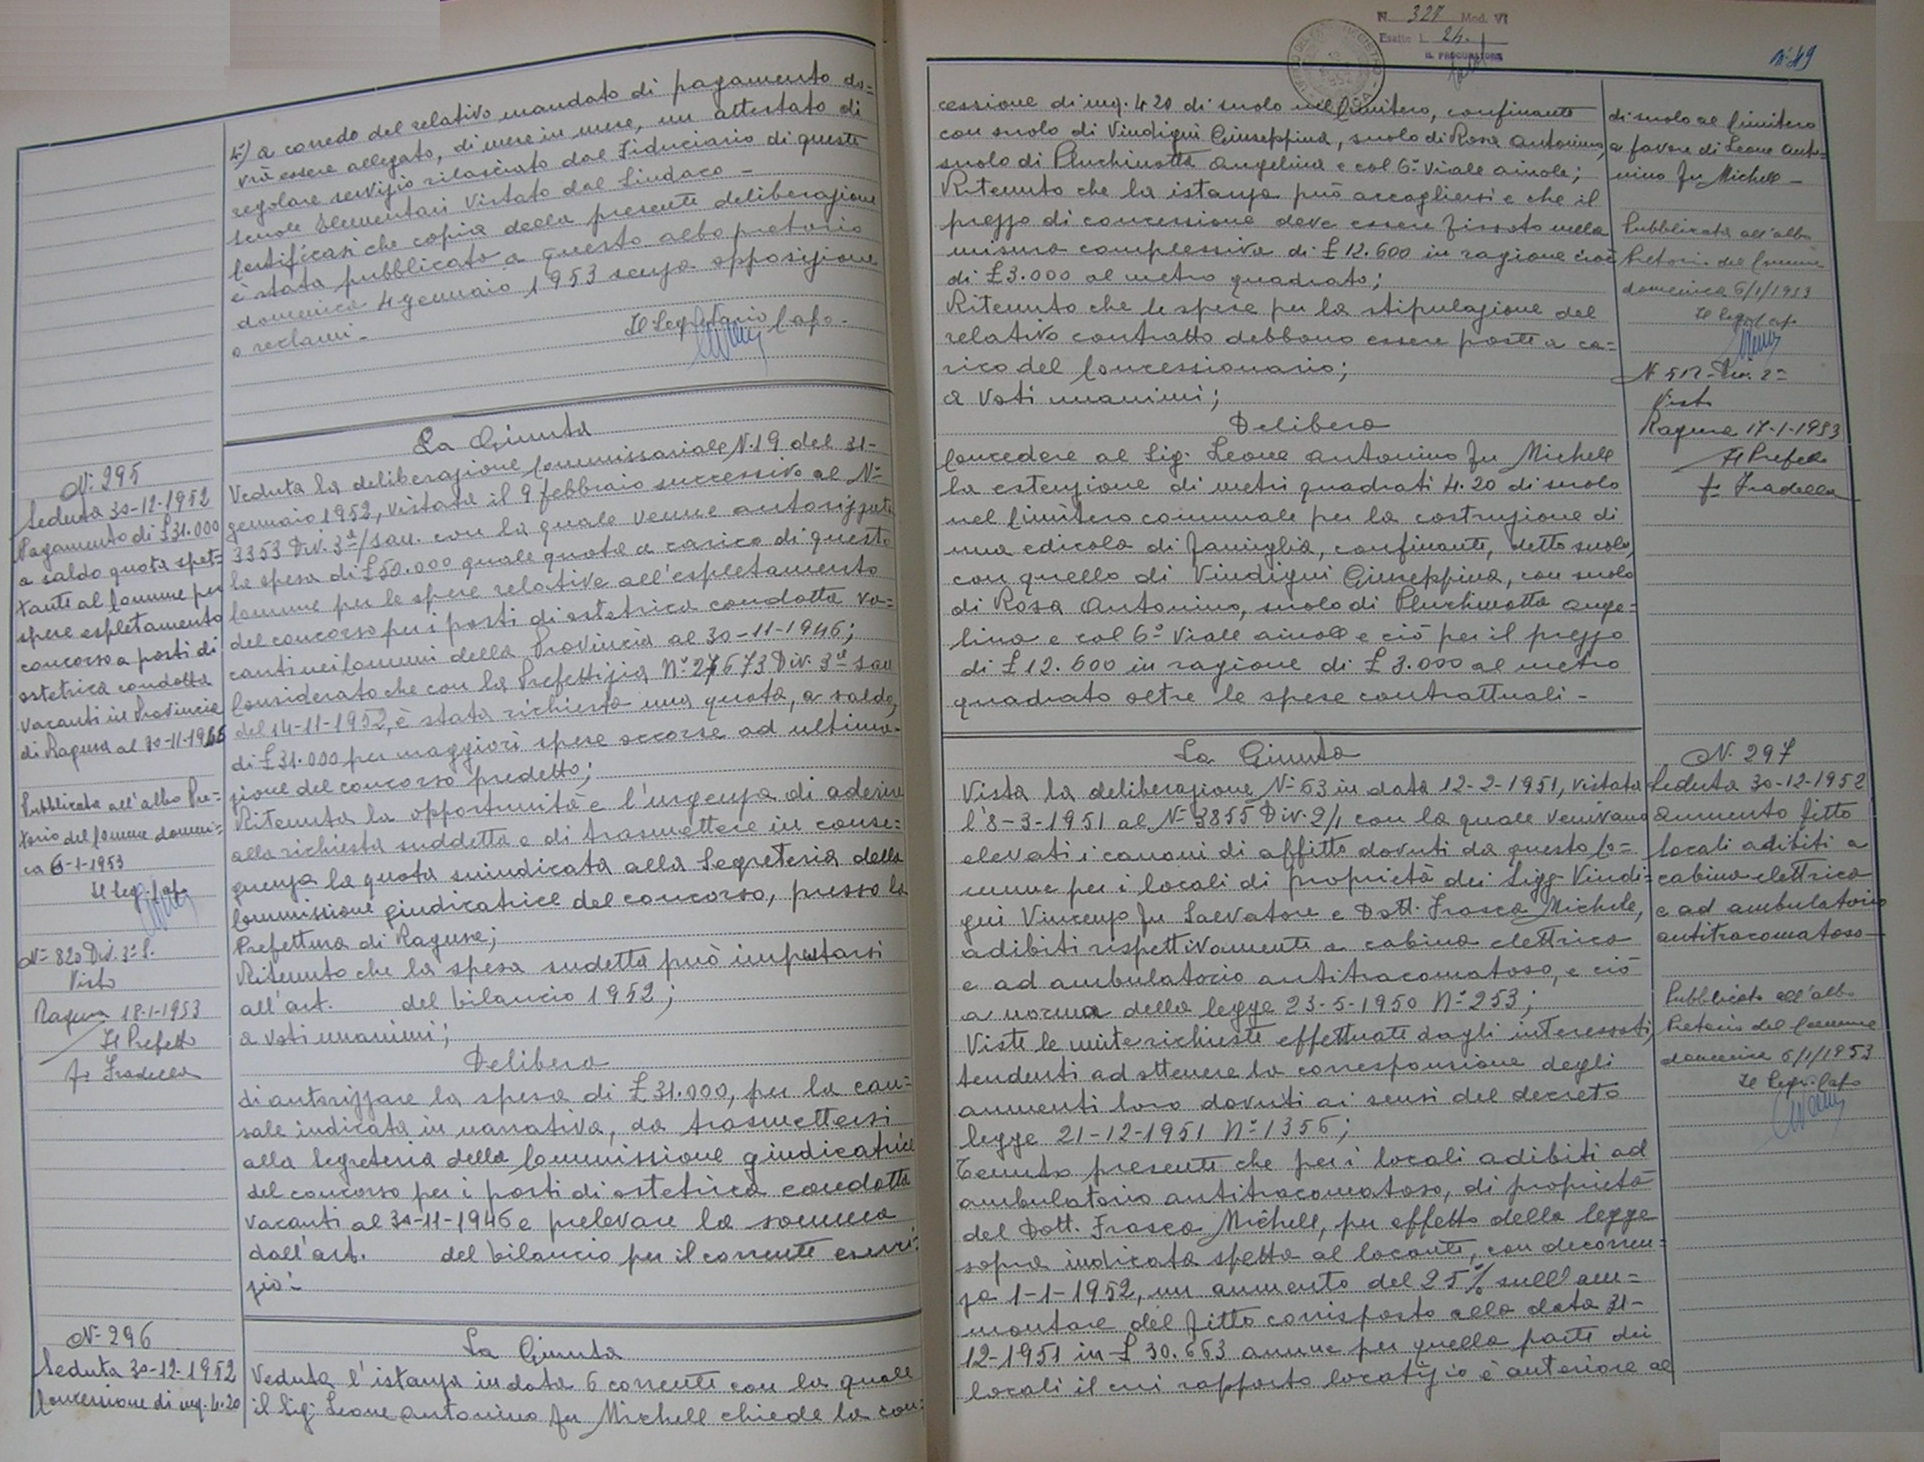 4°) a corredo del relativo mandato di pagamento do=
vrà essere allegato, di mese in mese, un attestato di
regolare servizio rilasciato dal Fiduciario di queste
scuole Elementari vistato dal Sindaco -
Certificasi che copia della presente deliberazione
è stata pubblicato a questo albo pretorio
domenica 4 gennaio 1953 senza opposizione
o reclami -
Il Segretario Capo -
N. 295
Seduta 30-12-1952
Pagamento di £31.000
a saldo quota spet=
tante al Comune per
spese espletamento
concorso a posti di
ostetrica condotta
vacanti in Provincia
di Ragusa al 30-11-1946
Pubblicata all'albo Pre=
torio del Comune domeni=
ca 6-1-1953
Il Seg. Capo
N° 820 Div. 3ª S.
Visto
Ragusa 18-1-1953
Il Prefetto
f° Gradella
La Giunta
Veduta la deliberazione Commissariale N. 19 del 31-
gennaio 1952, vistata il 9 febbraio successivo al N°
3353 Div. 3ª/San. con la quale venne autorizzata
la spesa di £50.000 quale quota a carico di questo
Comune per le spese relative all'espletamento
del concorso per i posti di ostetrica condotta va=
canti nei Comuni della Provincia al 30-11-1946;
Considerato che con la Prefettizia N° 27673 Div. 3ª San
del 14-11-1952, è stata richiesta una quota, a saldo,
di £31.000 per maggiori spese occorse ad ultima=
zione del concorso predetto;
Ritenuta la opportunità e l'urgenza di aderire
alla richiesta suddetta e di trasmettere in conse=
guenza la quota suindicata alla Segreteria della
Commissione giudicatrice del concorso, presso la
Prefettura di Ragusa;
Ritenuto che la spesa sudetta può imputarsi
all'art. del bilancio 1952;
a voti unanimi;
Delibera
di autorizzare la spesa di £31.000, per la cau=
sale indicata in narrativa, da trasmettersi
alla Segreteria della Commissione giudicatrice
del concorso per i posti di ostetrica condotta
vacanti al 30-11-1946 e prelevare la somma
dall'art. del bilancio per il corrente eserci=
zio -
N° 296
Seduta 30-12-1952
Concessione di mq. 4.20
La Giunta
Veduta l'istanza in data 6 corrente con la quale
il Sig. Leone Antonino fu Michele chiede la con=
N. 327 Mod. VI
Esatte L. 24.
IL PROCURATORE
N° 49
cessione di mq. 4 20 di suolo nel Cimitero, confinante
con suolo di Vindigni Giuseppina, suolo di Rosa Antonino,
suolo di Pluchinotta Angelina e col 6° Viale aiuole;
Ritenuto che la istanza può accogliersi e che il
prezzo di concessione deve essere fissato nella
misura complessiva di £12.600 in ragione cioè
di £3.000 al metro quadrato;
Ritenuto che le spese per la stipulazione del
relativo contratto debbono essere poste a ca=
rico del Concessionario;
a voti unanimi;
Delibera
Concedere al Sig. Leone Antonino fu Michele
la estenzione di metri quadrati 4.20 di suolo
nel Cimitero comunale per la costruzione di
una edicola di famiglia, confinante, detto suolo,
con quello di Vindigni Giuseppina, con suolo
di Rosa Antonino, suolo di Pluchinotta Ange=
lina e col 6° Viale aiuole e ciò per il prezzo
di £12.600 in ragione di £3.000 al metro
quadrato oltre le spese contrattuali -
di suolo al Cimitero
a favore di Leone Anto=
nino fu Michele -
Pubblicata all'albo
Pretorio del Comune
domenica 6/1/1953
Il Seg. Capo
N. 512 - Div. 2ª
Visto
Ragusa 17-1-1953
Il Prefetto
f° Gradella
La Giunta
Vista la deliberazione N° 63 in data 12-2-1951, vistata
l'8-3-1951 al N° 3855 Div. 2/1 con la quale venivano
elevati i canoni di affitto dovuti da questo Co=
mune per i locali di proprietà dei Sigg. Vindi=
gni Vincenzo fu Salvatore e Dott. Frasca Michele,
adibiti rispettivamente a cabina elettrica
e ad ambulatorio antitracomatoso, e ciò
a norma della legge 23-5-1950 N° 253;
Viste le unite richieste effettuate dagli interessati,
tendenti ad ottenere la corresponsione degli
aumenti loro dovuti ai sensi del decreto
legge 21-12-1951 N° 1356;
Tenuto presente che per i locali adibiti ad
ambulatorio antitracomatoso, di proprietà
del Dott. Frasca Michele, per effetto della legge
sopra indicata spetta al locante, con decorren=
za 1-1-1952, un aumento del 25% sull'am=
montare del fitto corrisposto alla data 31-
12-1951 in £ 30.663 annue per quella parte dei
locali il cui rapporto locatizio è anteriore al
N. 297
Seduta 30-12-1952
aumento fitto
locali adibiti a
cabina elettrica
e ad ambulatorio
antitracomatoso -
Pubblicato all'albo
Pretorio del Comune
domenica 6/1/1953
Il Segr. Capo